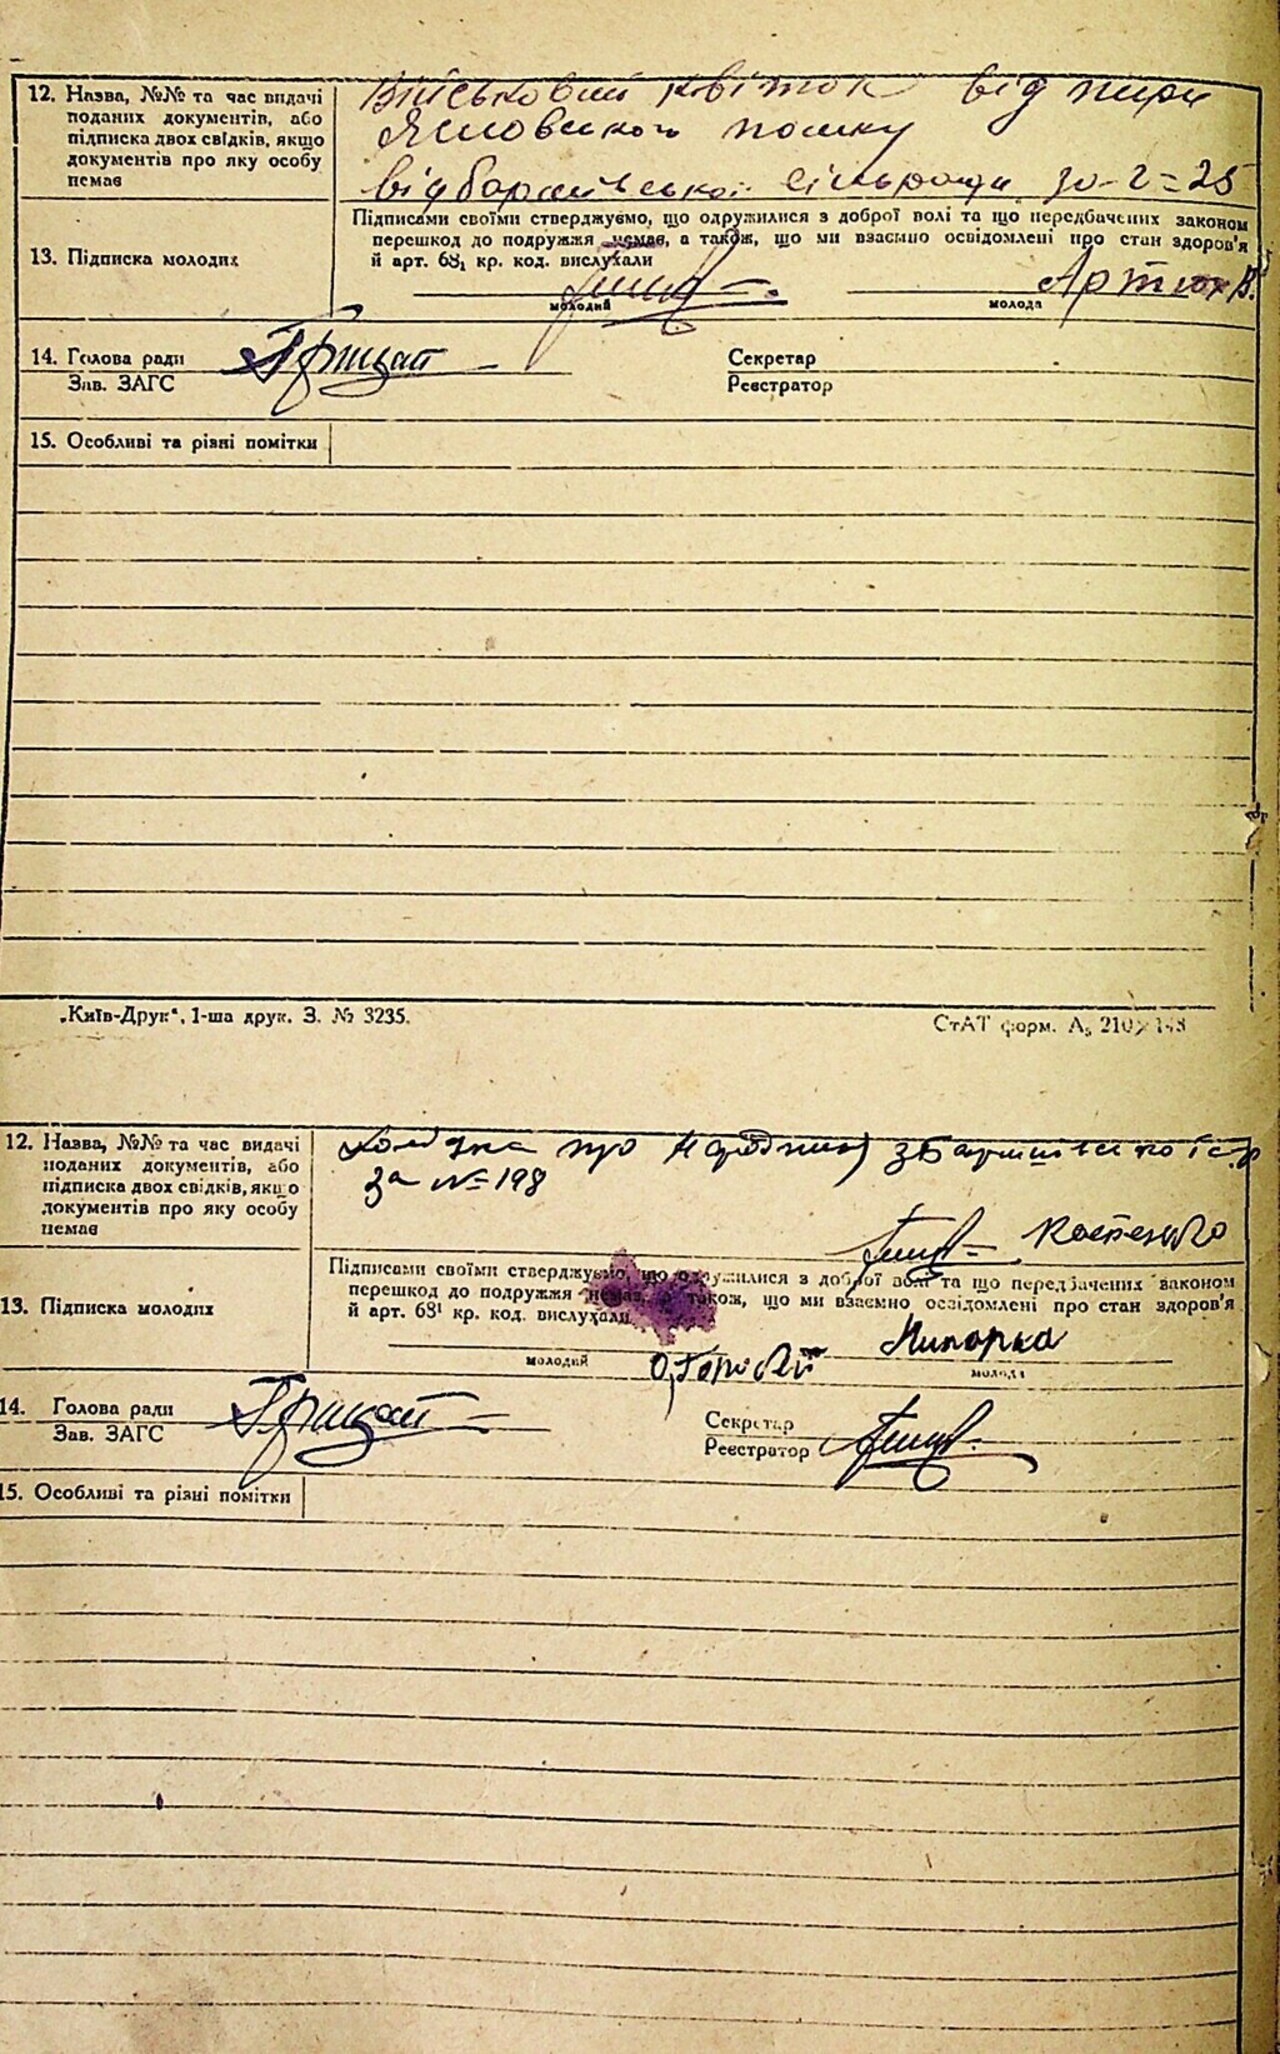 12. Назва, №№ та час видачі
поданих документів, або
підписка двох свідків, якщо
документів про яку особу
немає
Військовий квіток від
полку
сільради
13. Підписка молодих
Підписами своїми стверджуємо, що одружилися з доброї волі та що передбачених законом
перешкод до подружжя немає, а також, що ми взаємно освідомлені про стан здоров'я
й арт. 68₁ кр. код. вислухали
молодий
молода
Артюх В.
14. Голова ради
Грицай
Секретар
Зав. ЗАГС
Реєстратор
15. Особливі та різні помітки
„Київ-Друк“, 1-ша друк. З. № 3235.
СтАТ форм. А₅ 210×148
12. Назва, №№ та час видачі
поданих документів, або
підписка двох свідків, якщо
документів про яку особу
немає
про
за № 198
Костенко
13. Підписка молодих
Підписами своїми стверджуємо, що одружилися з доброї волі та що передбачених законом
перешкод до подружжя немає, а також, що ми взаємно освідомлені про стан здоров'я
й арт. 68¹ кр. код. вислухали
молодий
молода
14. Голова ради
Грицай
Секретар
Зав. ЗАГС
Реєстратор
15. Особливі та різні помітки